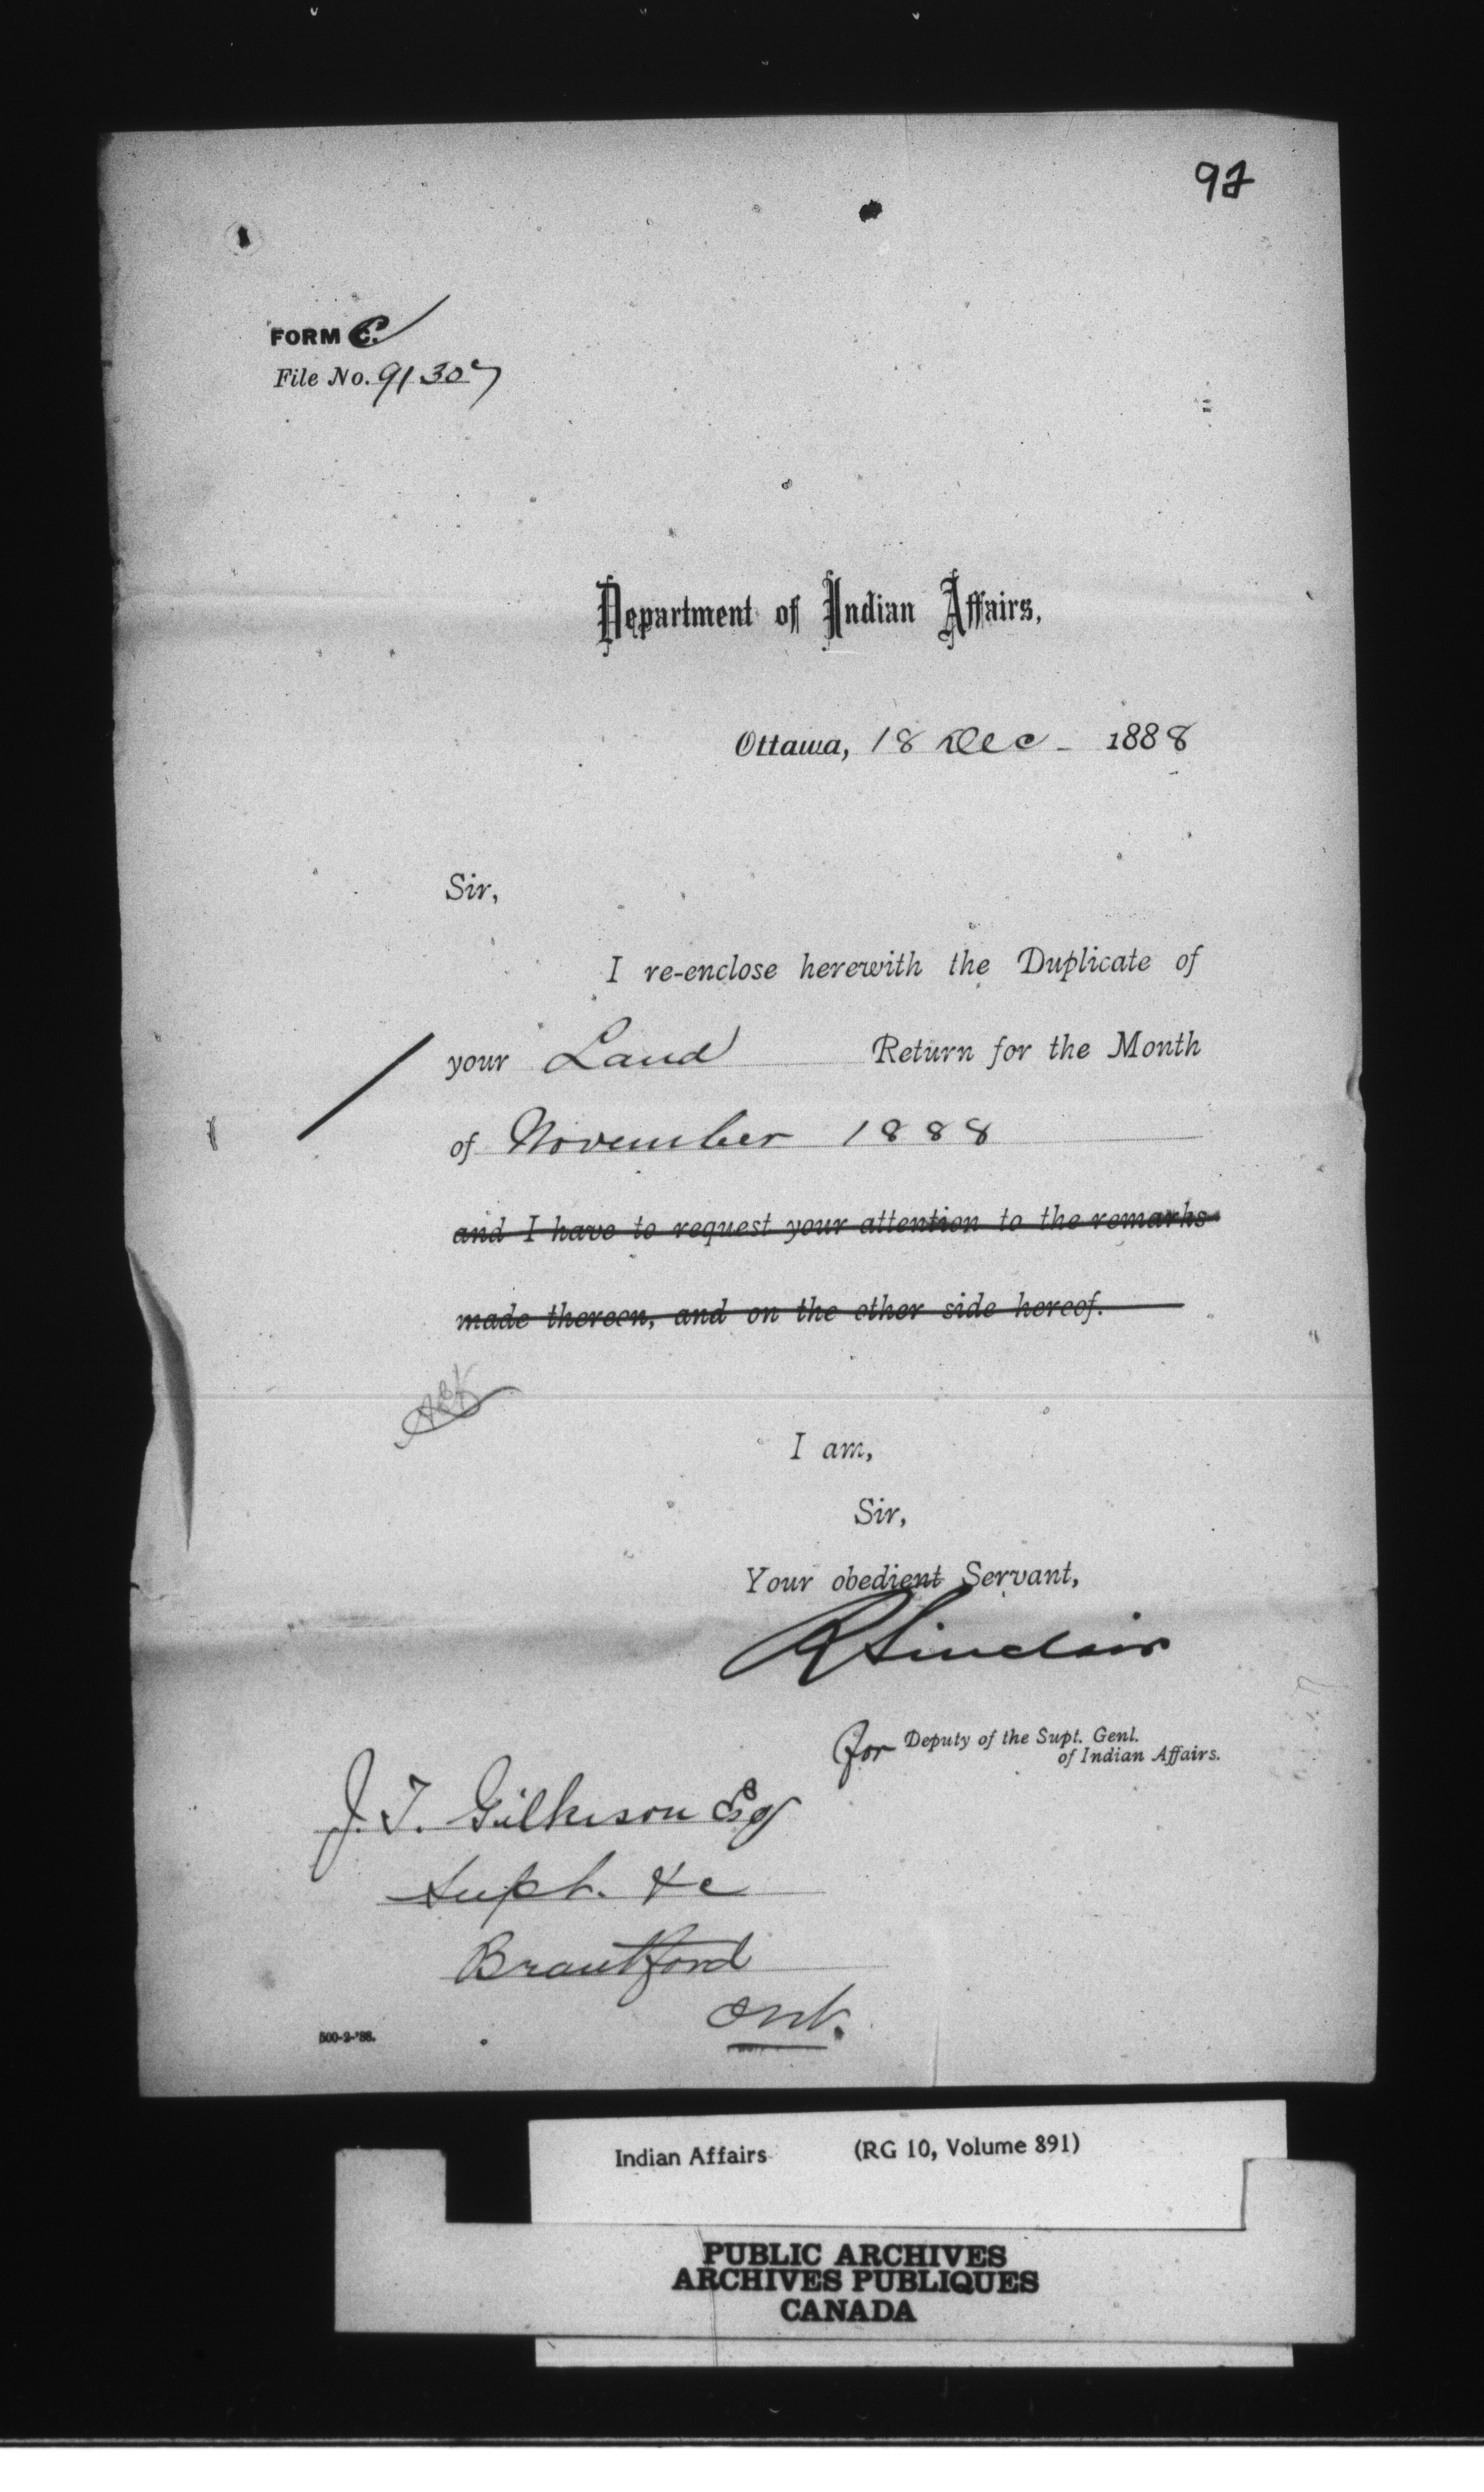 FORM C.
File No. 91307
Department of Indian Affairs,
Ottawa, 18 Dec - 1888
Sir,
I re-enclose herewith the Duplicate of
your Land Return for the Month
of November 1888
and I have to request your attention to the remarks
made thereon, and on the other side hereof.
I am,
Sir,
Your obedient Servant,
R Sinclair
for Deputy of the Supt. Genl.
of Indian Affairs.
J. T. Gilkison Esq
Supt. &c
Brantford
Ont.
500-2-'88.
Indian Affairs (RG 10, Volume 891)
PUBLIC ARCHIVES
ARCHIVES PUBLIQUES
CANADA